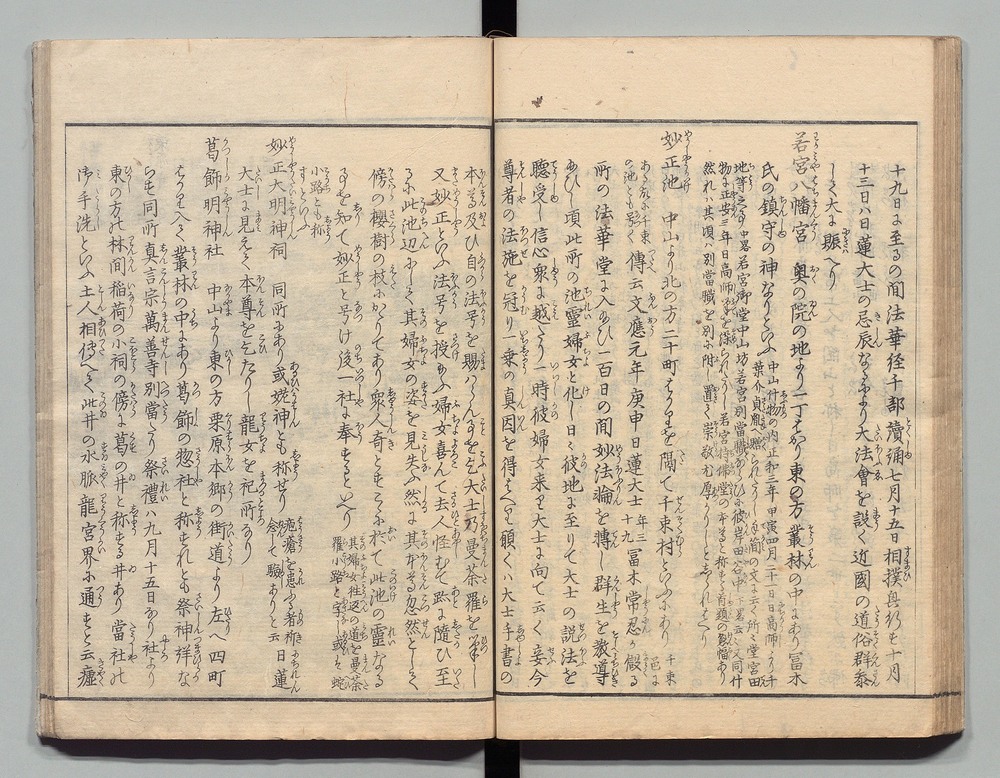 十九日に至るの間法華経千部讀誦七月十五日相撲興行も十月
十三日ハ蓮大士の忌辰なるより大法會を設く近國の道俗群参
しく大に賑へり
若宮八幡宮 奥の院の地より一丁はかり東の方叢林の中にあり冨木
氏の鎮守の神なりといふ 中山什物の内正和三年甲寅四月二十一日日高師より千
葉介貞胤に
地等之事 中畧若宮御堂中山坊若宮別當職
物に正安三年日高師
然れハ其頃ハ別當職を別に附し置く崇敬も厚かりしとしられたり
妙正池 中山より北の方二十町はかりを隔て千束村といふにあり 千束
の池とも号く 傳云文應元年庚申日蓮大士 年三十九 冨木常忍か假る
所の法華堂に入給ひ一百日の間妙法輪を轉し群生を教導
給ひし頃此所の池靈婦女と化し日々彼地に至りて大士の説法を
聴受し信心衆に越たり一時彼婦女来り大士に向て云く妾今
尊者の法施を冠り一乗の真因を得たり願くハ大士手書の
本尊及ひ自の法号を賜ハらん事を乞大士乃曼荼羅を筆し
又妙正といふ法号を授給ふ婦女喜んて去人怪むて跡に隨ひ至
るに此池辺にして其婦女の姿を見失ふ然に其本尊忽然として
傍の櫻樹の枝にかゝりてあり衆人奇とすこゝに於て此池の靈なる
事を知て妙正と号け後一社に奉すといへり 其婦女往返の道を曼荼
羅小路と字し或ハ蛇
小路とも称
すといふ
妙正大明神祠 同所にあり或姥神とも称せり 疱瘡を患ふる者祢
念して驗ありと云 日蓮
大士に見えて本尊を乞たりし龍女を祀る所なり
葛飾明神社 中山より東の方栗原本郷の街道より左へ四町
はかり入て叢林の中にあり葛飾の惣社と称すれとも祭神詳な
らす同所真言宗萬善寺別當たり祭禮ハ九月十五日なり社より
東の方の林間稲荷の小祠の傍に葛の井と称する井あり當社の
御手洗といふ土人相傳へて此井の水脈龍宮界に通すと云瘧